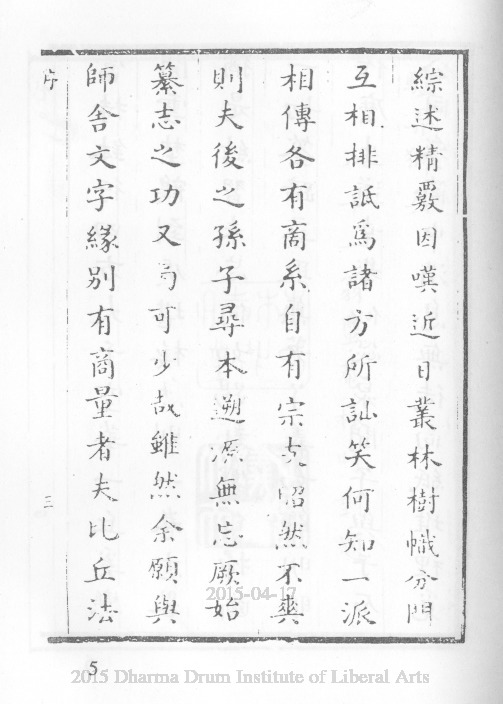 綜述精覈因嘆近日叢林樹幟分門
互相排詆爲諸方所訕笑何知一派
相傳各有商系自有宗支昭然不爽
則夫後之孫子尋本遡源無忘厥始
纂志之功又曷可少哉雖然余願與
師舍文字緣別有商量者夫比丘法
序
三
2015-04-17
5
2015 Dharma Drum Institute of Liberal Arts